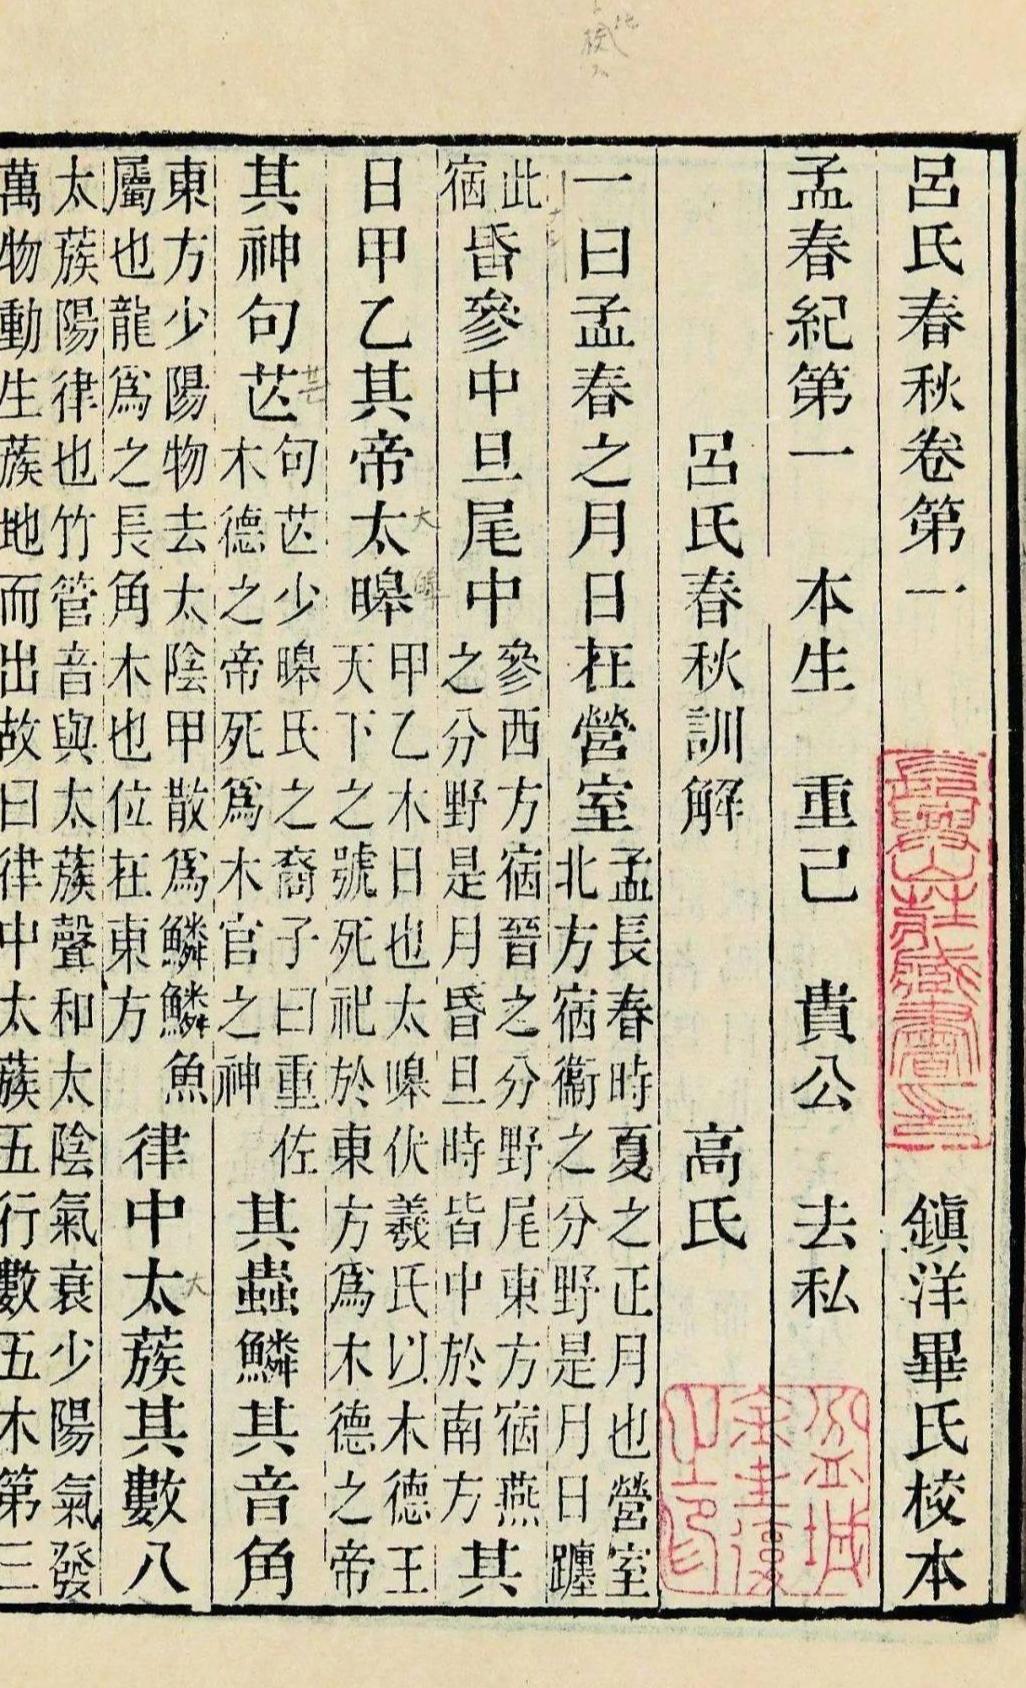 呂氏春秋卷第一 鎮洋畢氏校本
孟春紀第一 本生 重己 貴公 去私
呂氏春秋訓解 高氏
一曰孟春之月日在營室孟長春時夏之正月也營室北方宿衞之分野是月日躔
此宿昏參中旦尾中參西方宿晉之分野尾東方宿燕之分野是月昏旦時皆中於南方其
日甲乙其帝太暤甲乙木日也太暤伏羲氏以木德王天下之號死祀於東方爲木德之帝
其神句芒句芒少暤氏之裔子曰重佐木德之帝死爲木官之神其蟲鱗其音角
東方少陽物去太陰甲散爲鱗鱗魚屬也龍爲之長角木也位在東方律中太蔟其數八
太蔟陽律也竹管音與太蔟聲和太陰氣衰少陽氣發萬物動生蔟地而出故曰律中太蔟五行數五木第三